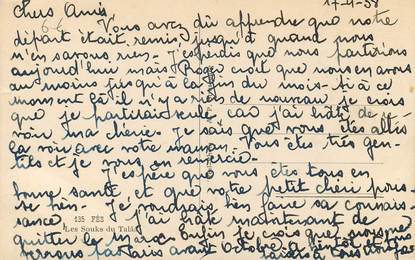 17-4-58
Chers Amis
Vous avez dû apprendre que notre
départ était remis jusqu'à quand nous
n'en savons rien. J'espérais que nous partirions
aujourd'hui mais Roger croit que nous en avons
au moins jusqu'à la fin du mois. Si à ce
moment là il n'y a rien de nouveau je crois
que je partirai seule car j'ai hâte de
voir ma chérie. Je sais que vous êtes allés
la voir avec votre maman. Vous êtes très gen-
tils et je vous en remercie.
J'espère que vous êtes tous en
bonne santé et que votre petit chéri pous-
se bien. Je voudrais bien faire sa connais-
sance. J'ai hâte maintenant de
135 FÈS
Les Souks du Talâa
quitter le Maroc. Enfin je crois que nous ne
serons pas avant Octobre. à bientôt
baisers à tous